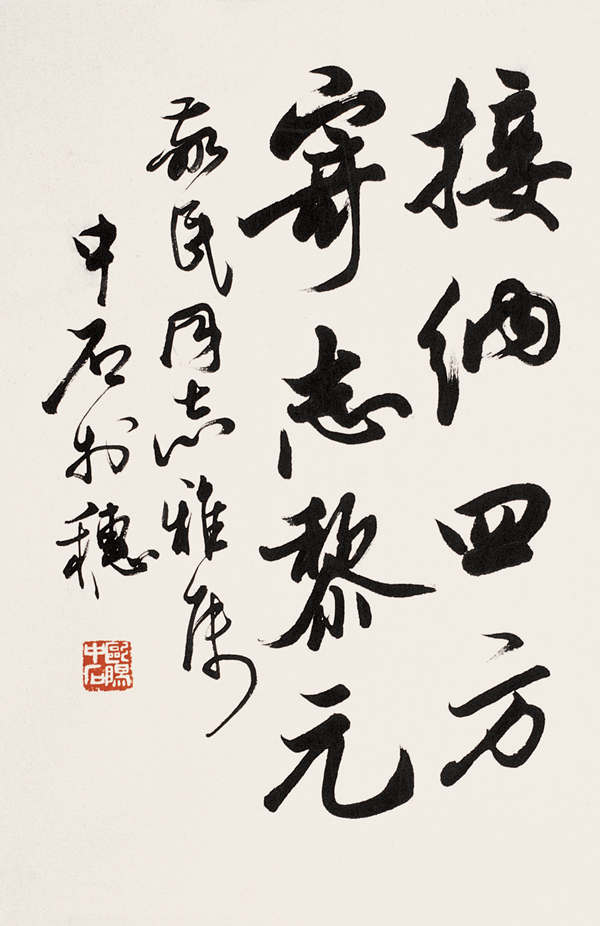 接纳四方
寄志黎元
敬民同志雅属
中石于穗
欧阳中石